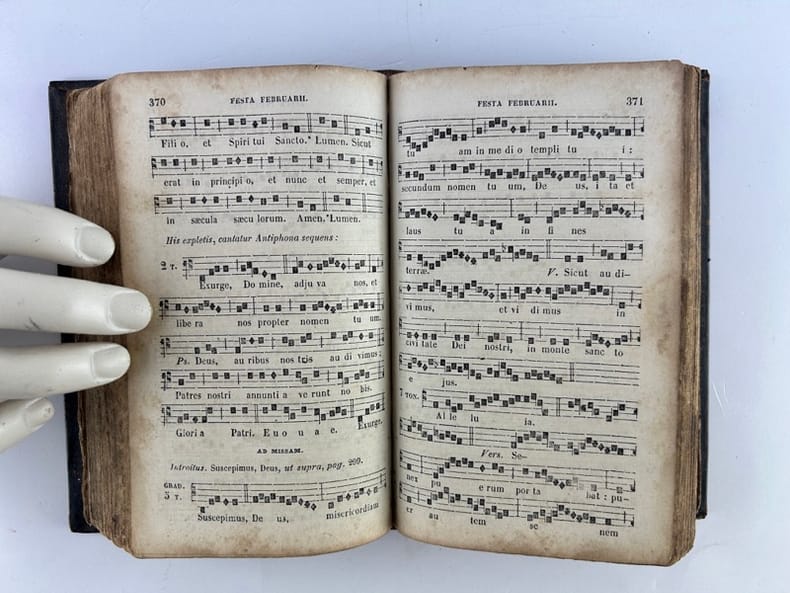 370 FESTA FEBRUARII.
Fili o, et Spiri tui Sancto.* Lumen. Sicut
erat in principi o, et nunc et semper, et
in sæcula sæcu lorum. Amen.*Lumen.
His expletis, cantatur Antiphona sequens :
2 T.
Exurge, Do mine, adju va nos, et
libe ra nos propter nomen tu um.
Ps. Deus, au ribus nos tris au di vimus :
Patres nostri annunti a ve runt no bis.
Glori a Patri. E u o u a e. Exurge.
AD MISSAM.
Introitus. Suscepimus, Deus, ut supra, pag. 299.
GRAD.
5 T.
Suscepimus, De us, misericordiam
FESTA FEBRUARII. 371
tu am in me di o templi tu i :
secundum nomen tu um, De us, i ta et
laus tu a in fi nes
terræ. V. Sicut au di-
vi mus, et vi di mus in
civi tate Dei nostri, in monte sanc to
e jus.
7 TON.
Al le lu ia.
Vers. Se-
nex pu e rum por ta bat : pu-
er au tem se nem